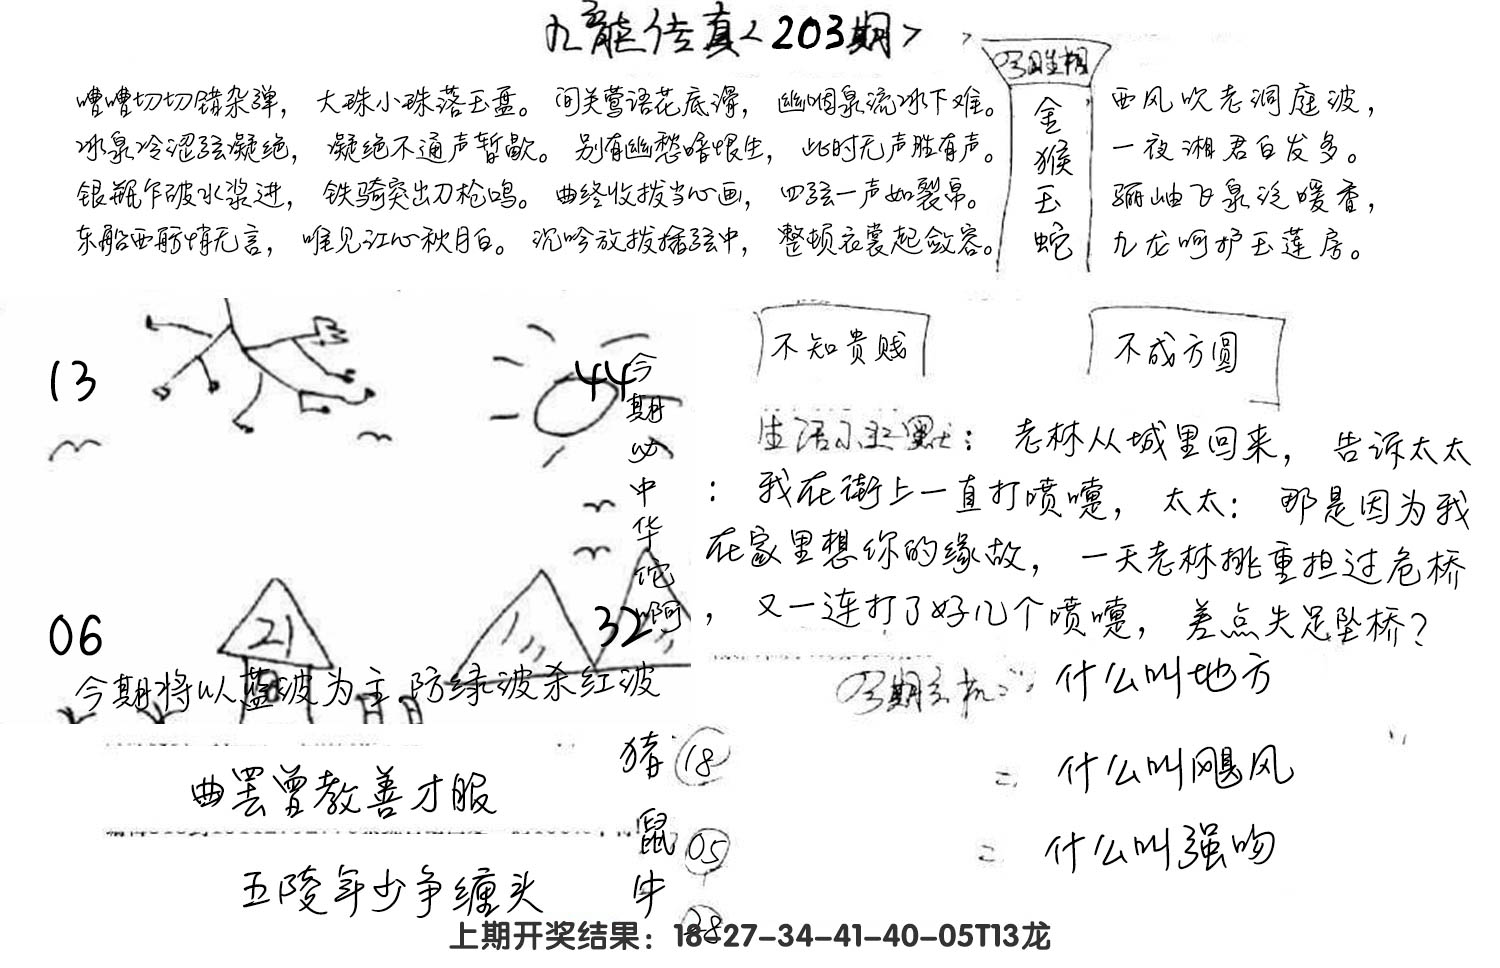 九龍传真<203期>
嘈嘈切切错杂弹，大珠小珠落玉盘。间关莺语花底滑，幽咽泉流冰下难。
冰泉冷涩弦凝绝，凝绝不通声暂歇。别有幽愁暗恨生，此时无声胜有声。
银瓶乍破水浆迸，铁骑突出刀枪鸣。曲终收拨当心画，四弦一声如裂帛。
东船西舫悄无言，唯见江心秋月白。沉吟放拨插弦中，整顿衣裳起敛容。
金猴玉蛇
西风吹老洞庭波，
一夜湘君白发多。
骊岫飞泉泛暖香，
九龙呵护玉莲房。
13
44
今期必中华佗啊
06
21
32
今期将以蓝波为主防绿波杀红波
不知贵贱
不成方圆
生活小幽默：老林从城里回来，告诉太太
：我在街上一直打喷嚏，太太：那是因为我
在家里想你的缘故，一天老林挑重担过危桥
，又一连打了好几个喷嚏，差点失足坠桥？
今期玄机：什么叫地方
二 什么叫飓风
二 什么叫强吻
曲罢曾教善才服
五陵年少争缠头
猪 18
鼠 05
牛
上期开奖结果：18-27-34-41-40-05T13龙